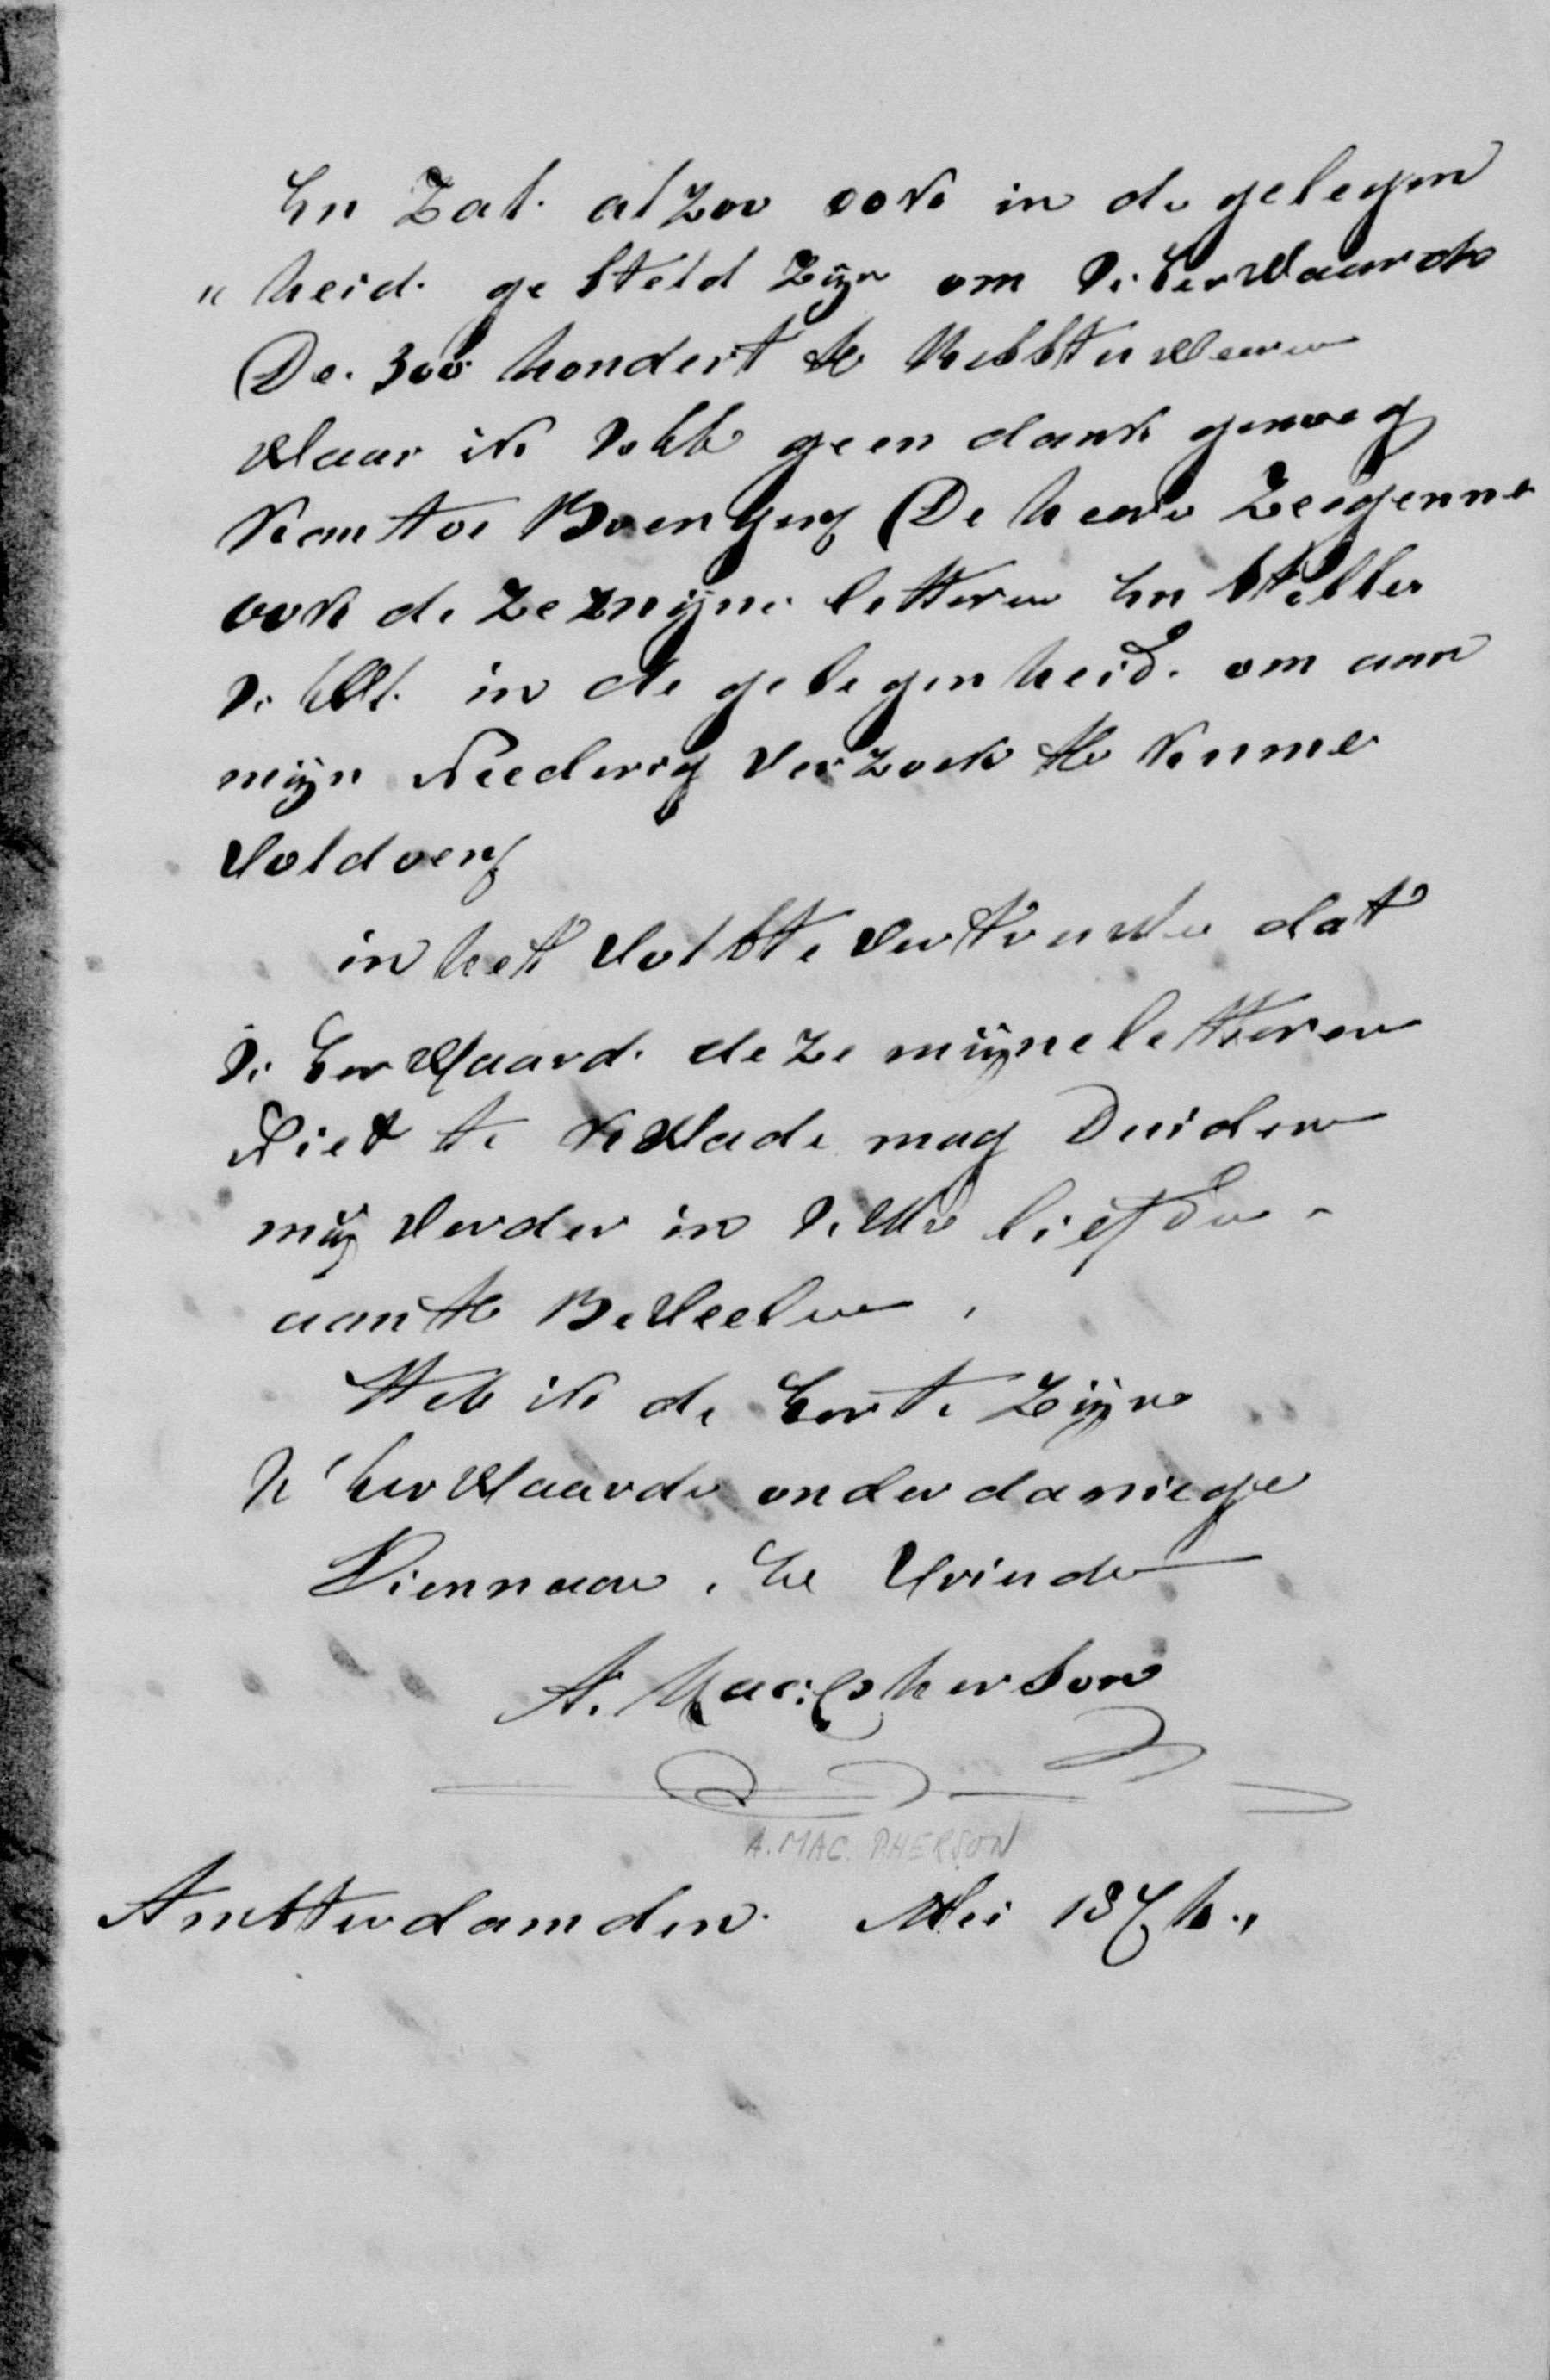 En Zal alzoo ook in de gelegen
" heid gesteld zijn om U EerWaarde
De 300 hondert te
Waar ik U geen dank genoeg
kan toe Brengen De heere Zeegenne
ook de ze mijne letteren En Stelle
U in de gelegenheid om aan
mijn Neederig Verzoek te kunne
Voldoen
in het Volste Vertrouwe dat
U EerWaard deze mijne letteren
Niet te kWade mag Duiden
mij Verder in U liefde
aan te BeVeelen,
Heb ik de Eer te Zijn
U EerWaarde onderdaniege
Diennaar, En Vriend
A. Mac: Pherson
A. MAC. PHERSON
Amsterdam den Mei